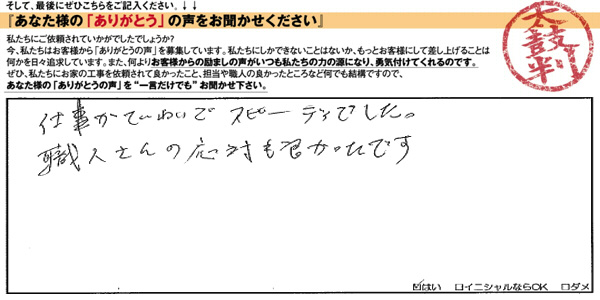 そして、最後にぜひこちらをご記入ください。↓↓
『あなた様の「ありがとう」の声をお聞かせください』
太鼓判
私たちにご依頼されていかがでしたでしょうか?
今、私たちはお客様から「ありがとうの声」を募集しています。私たちにしかできないことはないか、もっとお客様にして差し上げることは
何かを日々追求しています。また、何よりお客様からの励ましの声がいつも私たちの力の源になり、勇気付けてくれるのです。
ぜひ、私たちにお家の工事を依頼されて良かったこと、担当や職人の良かったところなど何でも結構ですので、
あなた様の「ありがとうの声」を"一言だけでも"お聞かせ下さい。
仕事がていねいで スピーディでした。
職人さんの応対も良かったです
☑はい ロイニシャルならOK ロダメ